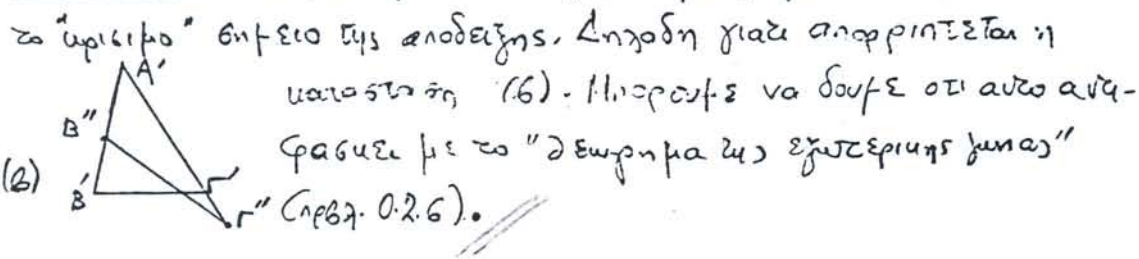 το "κρισιμο" σημειο της αποδειξης. Δηλαδη γιατι απορριπτεται η
κατασταση (β). Μπορουμε να δουμε οτι αυτο αντι-
φασκει με το "θεωρημα της εξωτερικης γωνιας"
(πρβλ. 0.2.6).
A'
B"
(β)
B'
Γ'
Γ"